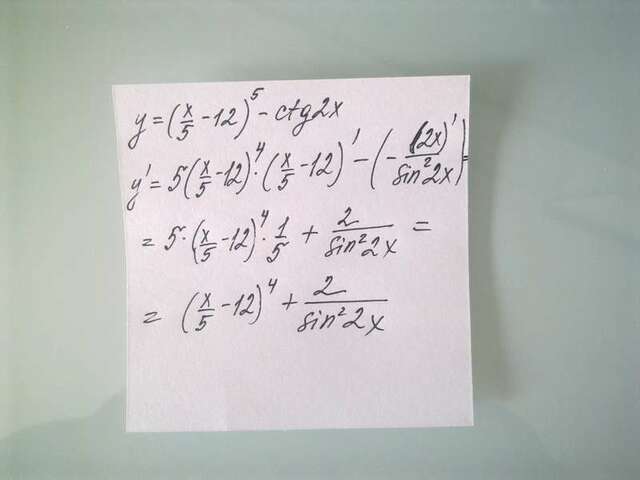 y = (x/5 - 12)^5 - ctg2x
y' = 5(x/5 - 12)^4 · (x/5 - 12)' - (- (2x)'/sin^2 2x) =
= 5 · (x/5 - 12)^4 · 1/5 + 2/sin^2 2x =
= (x/5 - 12)^4 + 2/sin^2 2x